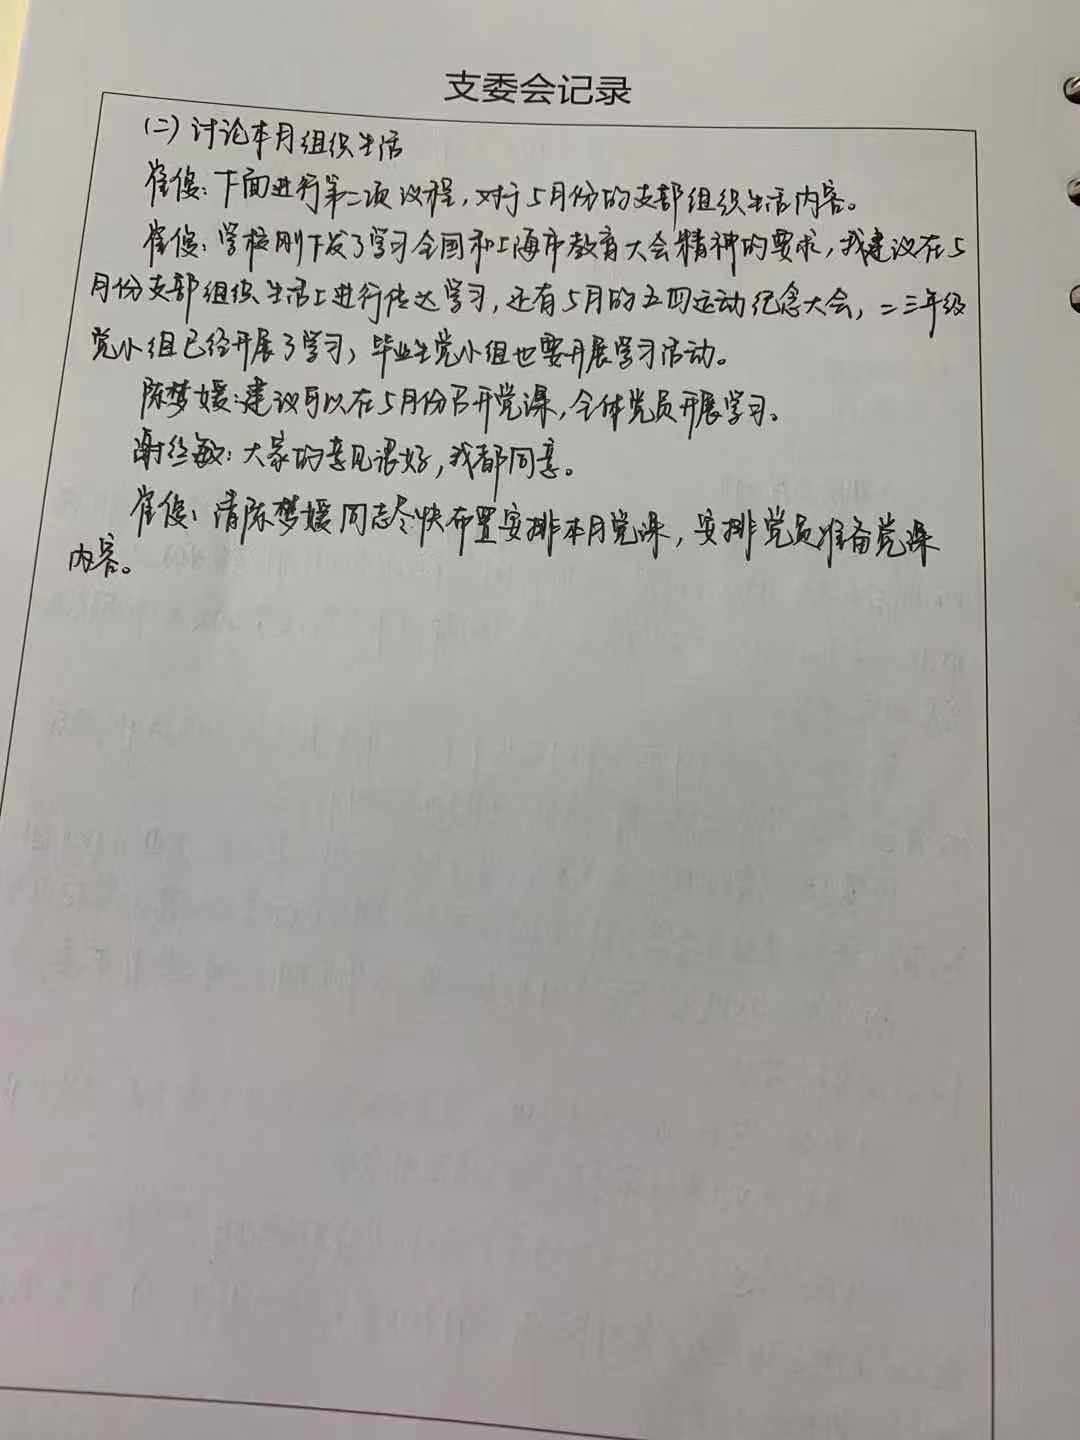 支委会记录
(二)讨论本月组织生活
崔俊：下面进行第二项议程，对于5月份的支部组织生活内容。
崔俊：学校刚下发了学习全国和上海市教育大会精神的要求，我建议在5
月份支部组织生活上进行传达学习，还有5月的五四运动纪念大会，二三年级
党小组已经开展了学习，毕业生党小组也要开展学习活动。
陈梦媛：建议可以在5月份召开党课，全体党员开展学习。
谢丝敏：大家的意见很好，我都同意。
崔俊：请陈梦媛同志尽快布置安排本月党课，安排党员准备党课
内容。